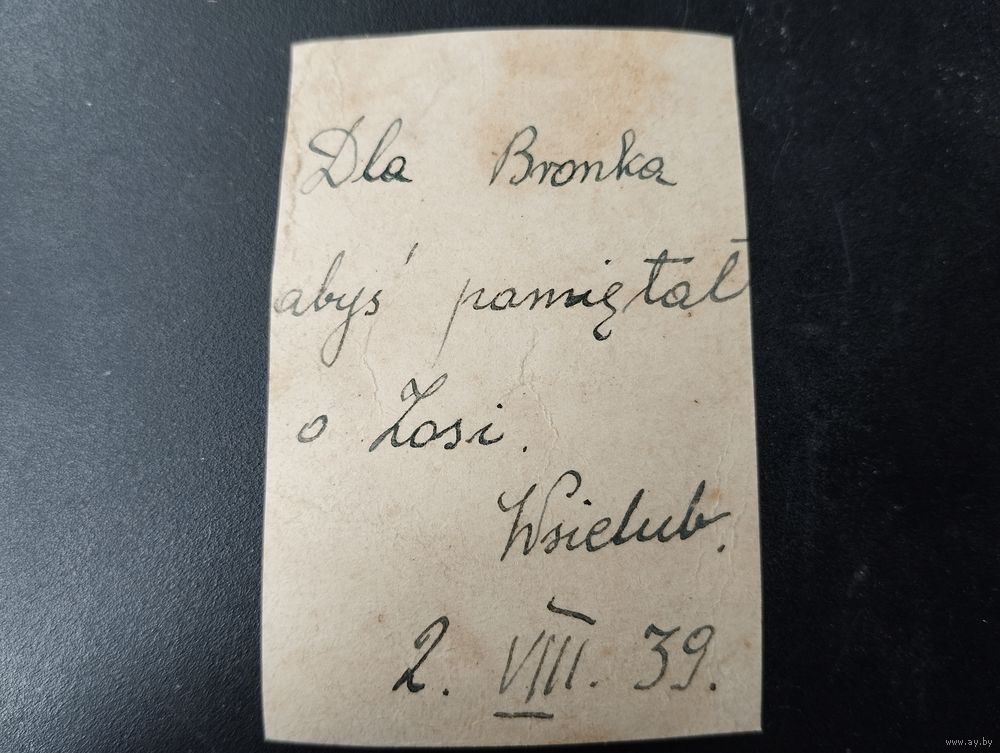 Dla Bronka
abyś pamiętał
o Zosi.
Wsielub.
2. VIII. 39.
www.ay.by